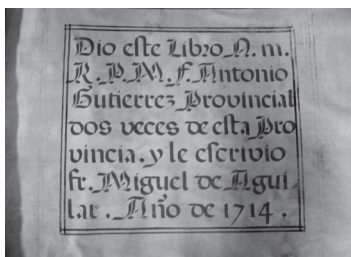 Dio este Libro N. m.
R. P. M. F. Antonio
Gutierrez Provincial
dos veces de esta Pro
vincia. y le escrivio
fr. Miguel de Agui
lar. Año de 1714.